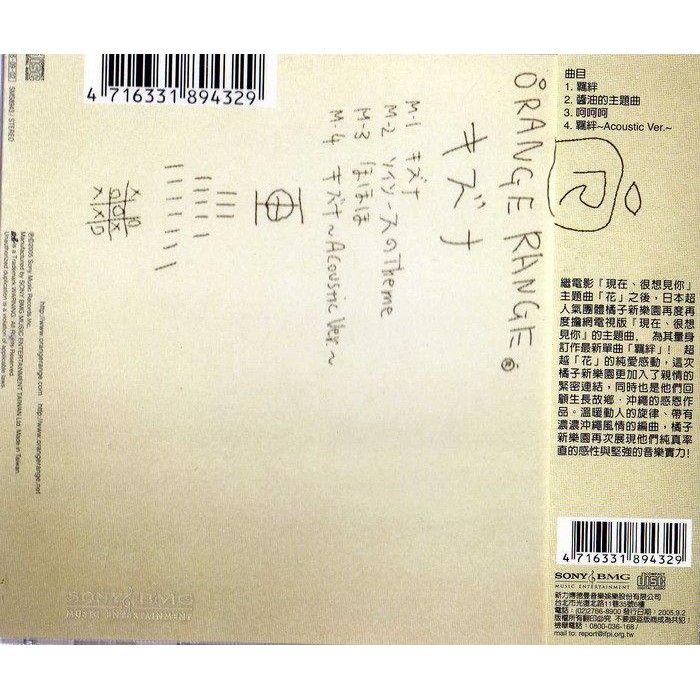 ORANGE RANGE
キズナ
M-1 キズナ
M-2 ソイソースのTheme
M-3 ほほほ
M-4 キズナ~Acoustic Ver.~
4 716331 894329
STEREO
http://www.orangerange.com http://www.orangerange.net
℗©2005 Sony Music Records Inc.
Manufactured by SONY BMG MUSIC ENTERTAINMENT TAIWAN Ltd. Made in Taiwan.
is a Trademark WARNING: All Rights Reserved.
Unauthorized duplication is a violation of applicable laws.
SONY BMG
MUSIC ENTERTAINMENT
曲目
1. 羈絆
2. 醬油的主題曲
3. 呵呵呵
4. 羈絆~Acoustic Ver.~
繼電影「現在、很想見你」
主題曲「花」之後，日本超
人氣團體橘子新樂園再度再
度擔綱電視版「現在、很想
見你」的主題曲，為其量身
訂作最新單曲「羈絆」！ 超
越「花」的純愛感動，這次
橘子新樂園更加入了親情的
緊密連結，同時也是他們回
顧生長故鄉‧沖繩的感恩作
品。溫暖動人的旋律、帶有
濃濃沖繩風情的編曲，橘子
新樂園再次展現他們純真率
直的感性與堅強的音樂實力!
4 716331 894329
SONY BMG
MUSIC ENTERTAINMENT
COMPACT disc DIGITAL AUDIO
新力博德曼音樂娛樂股份有限公司
台北市光復北路11巷35號6樓
電話：(02)2766-8900 發行日期：2005.9.2
版權所有翻印必究 不要跟盜版商成為共犯！
檢舉電話：0800-036-168 /
mail to: report@ifpi.org.tw